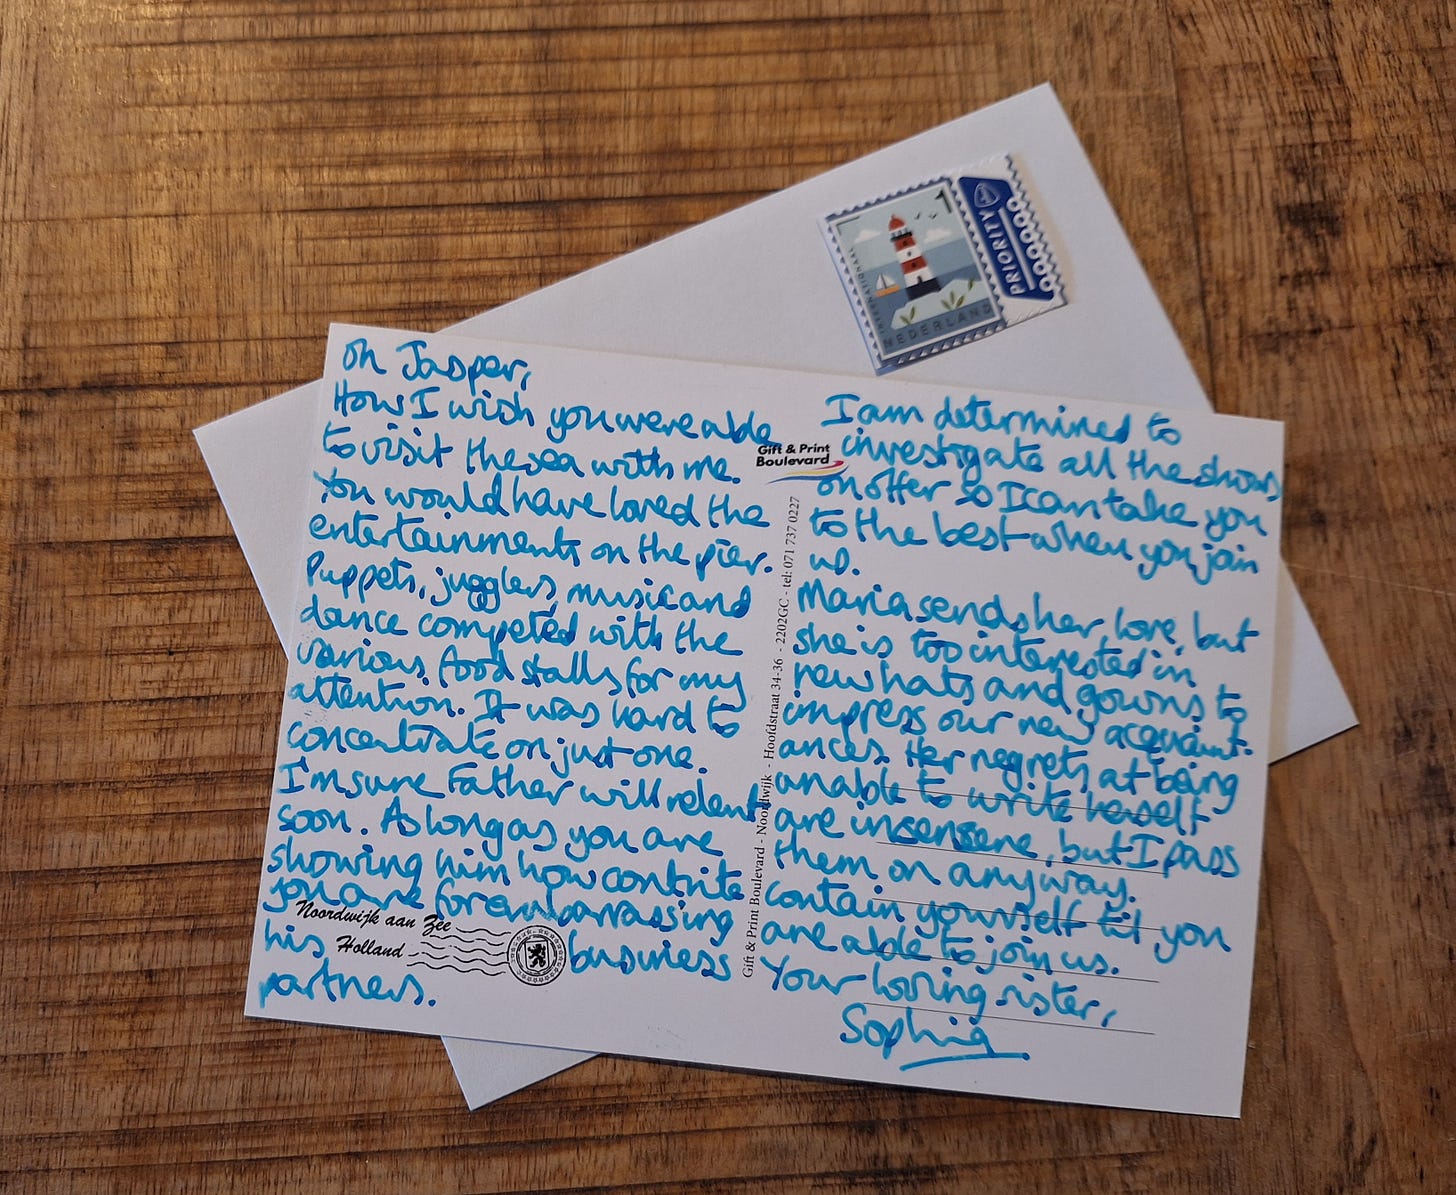 Oh Jasper,
How I wish you were able
to visit the sea with me.
You would have loved the
entertainments on the pier.
Puppets, jugglers, music and
dance competed with the
various food stalls for my
attention. It was hard to
concentrate on just one.
I'm sure Father will relent
soon. As long as you are
showing him how contrite
you are for embarrassing
his business
partners.
Noordwijk aan Zee
Holland
Gift & Print
Boulevard
Gift & Print Boulevard - Noordwijk - Hoofdstraat 34-36 - 2202GC - tel: 071 737 0227
I am determined to
investigate all the shows
on offer so I can take you
to the best when you join
us.
Maria sends her love, but
she is too interested in
new hats and gowns to
impress our new acquaint-
ances. Her regrets at being
unable to write herself
are insensere, but I pass
them on anyway.
Contain yourself til you
are able to join us.
Your loving sister,
Sophia
1
INTERNATIONAAL
NEDERLAND
PRIORITY